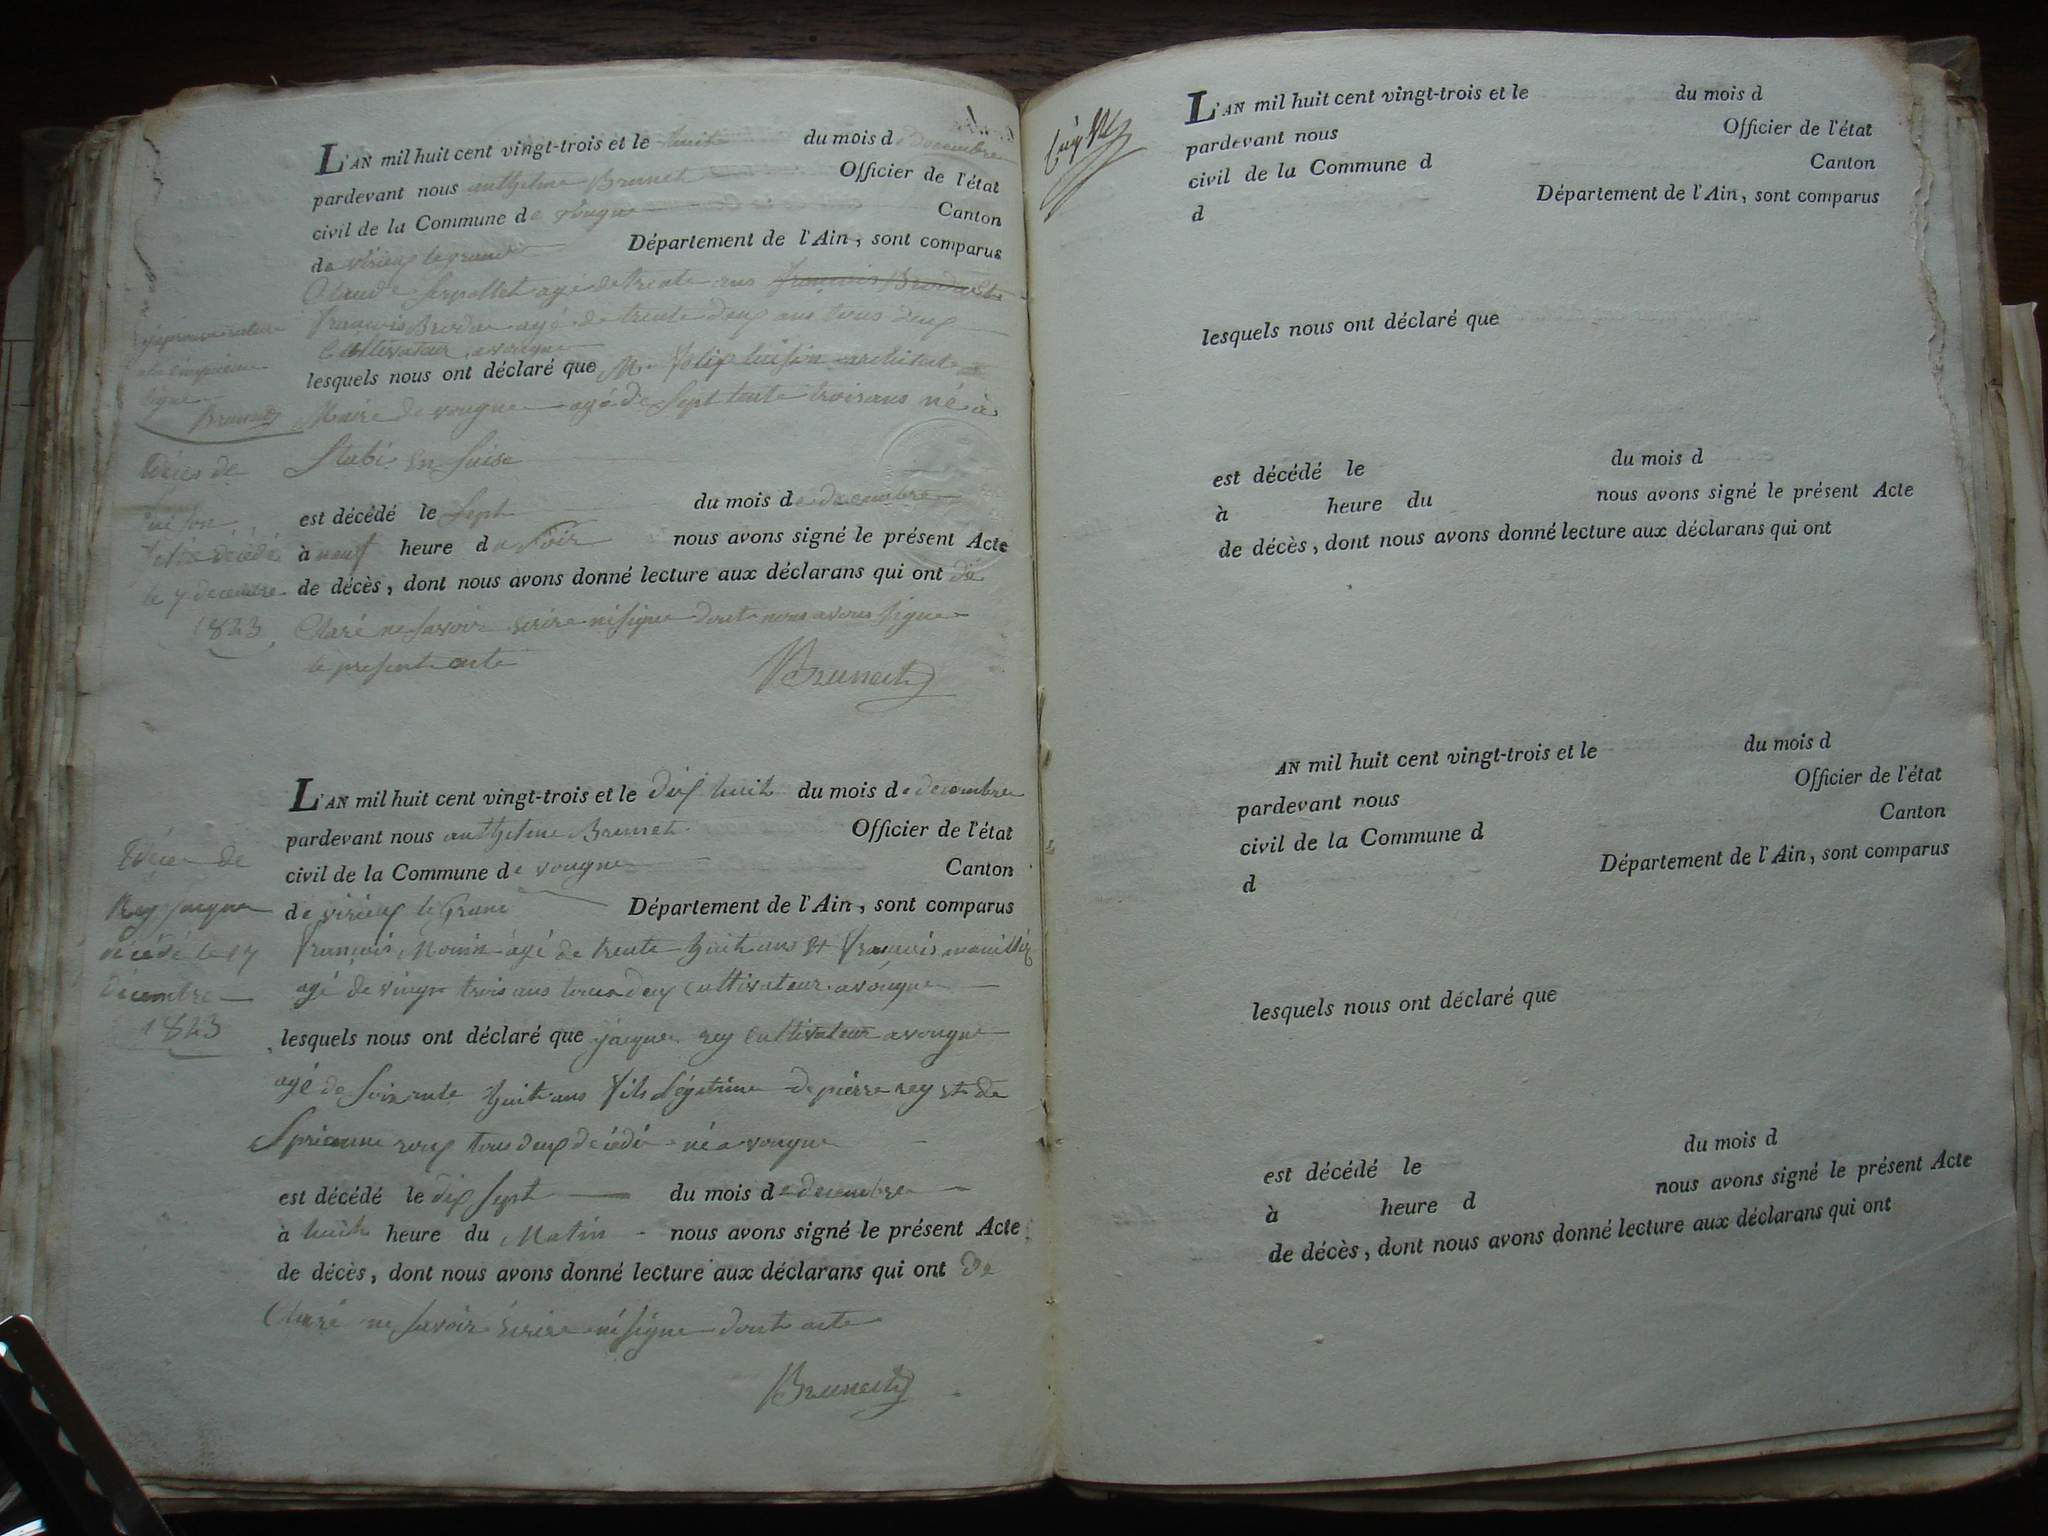 L'AN mil huit cent vingt-trois et le huit du mois de decembre
pardevant nous anthelme Brunet Officier de l'état
civil de la Commune de vongne Canton
de virieux le grand Département de l'Ain, sont comparus
Claude Serpollet agé de trente ans
françois Brodu agé de trente deux ans tous deux
Cultivateur a vongne
lesquels nous ont déclaré que Mr luisson architecte
Maire de vongne agé de Sept tente trois ans né à
Stabi en Suise
est décédé le Sept du mois de decembre
à neuf heure de Soir nous avons signé le présent Acte
de décès, dont nous avons donné lecture aux déclarans qui ont dé
Claré ne savoir écrire ni signe dont nous avons signe
le present acte
Brunet
ligne
Brunet
Déces de
décédé
le 7 decembre
1823
L'AN mil huit cent vingt-trois et le dix huit du mois de decembre
pardevant nous anthelme Brunet Officier de l'état
civil de la Commune de vongne Canton
de virieux le Grand Département de l'Ain, sont comparus
françois Monin agé de trente huit ans et françois
agé de vingt trois ans tous deux Cultivateur a vongne
lesquels nous ont déclaré que jacque rey Cultivateur a vongne
agé de Soixante huit ans fils Légitime de pierre rey et de
roux tous deux décédé né a vongne
est décédé le dix Sept du mois de decembre
à huit heure du Matin nous avons signé le présent Acte
de décès, dont nous avons donné lecture aux déclarans qui ont dé
Claré ne savoir écrire ni signe dont acte
Brunet
Déces de
Rey jacque
décédé le 17
décembre
1823
L'AN mil huit cent vingt-trois et le du mois d
pardevant nous Officier de l'état
civil de la Commune d Canton
d Département de l'Ain, sont comparus
lesquels nous ont déclaré que
est décédé le du mois d
à heure du nous avons signé le présent Acte
de décès, dont nous avons donné lecture aux déclarans qui ont
AN mil huit cent vingt-trois et le du mois d
pardevant nous Officier de l'état
civil de la Commune d Canton
d Département de l'Ain, sont comparus
lesquels nous ont déclaré que
est décédé le du mois d
à heure d nous avons signé le présent Acte
de décès, dont nous avons donné lecture aux déclarans qui ont